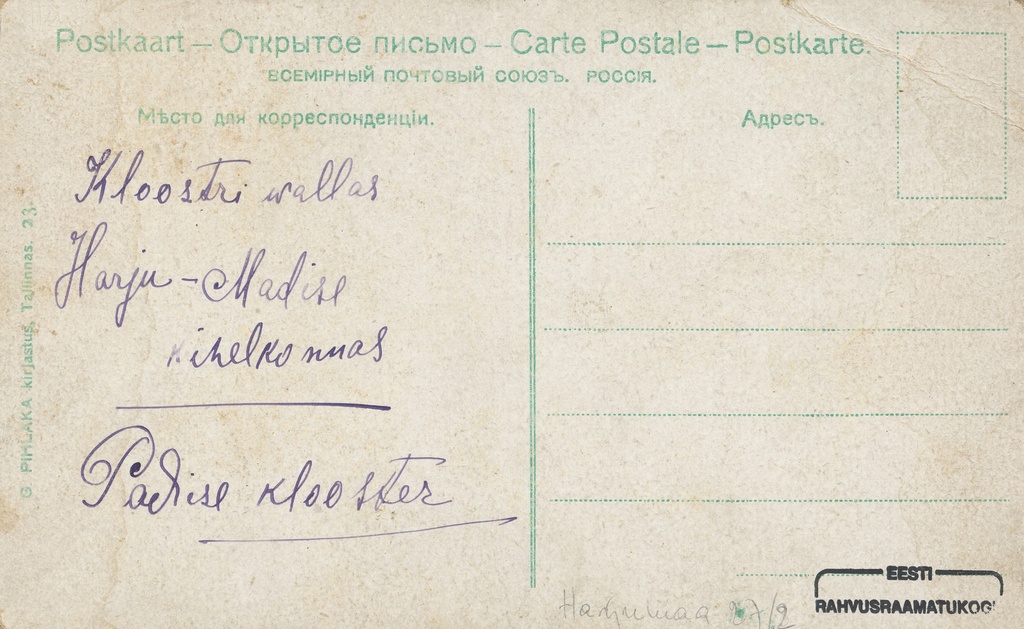 Postkaart – Открытое письмо – Carte Postale – Postkarte.
ВСЕМІРНЫЙ ПОЧТОВЫЙ СОЮЗЪ. РОССІЯ.
Мѣсто для корреспонденціи.
Адресъ.
Kloostri wallas
Harju-Madise
kihelkonnas
Padise klooster
G. PIHLAKA kirjastus, Tallinnas. 23.
EESTI
RAHVUSRAAMATUKOGU
Harjumaa 27/2